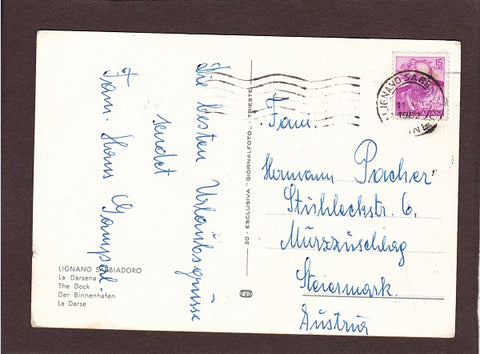 Die besten Urlaubsgrüsse
sendet
Fam. Hans Gamperl.
LIGNANO SABBIADORO
La Darsena
The Dock
Der Binnenhafen
La Darse
20 - ESCLUSIVA "GIORNALFOTO" - TRIESTE
15
LIGNANO SABB
Fam.
Hermann Pacher
Stuhleckstr. 6.
Mürzzuschlag
Steiermark.
Austria